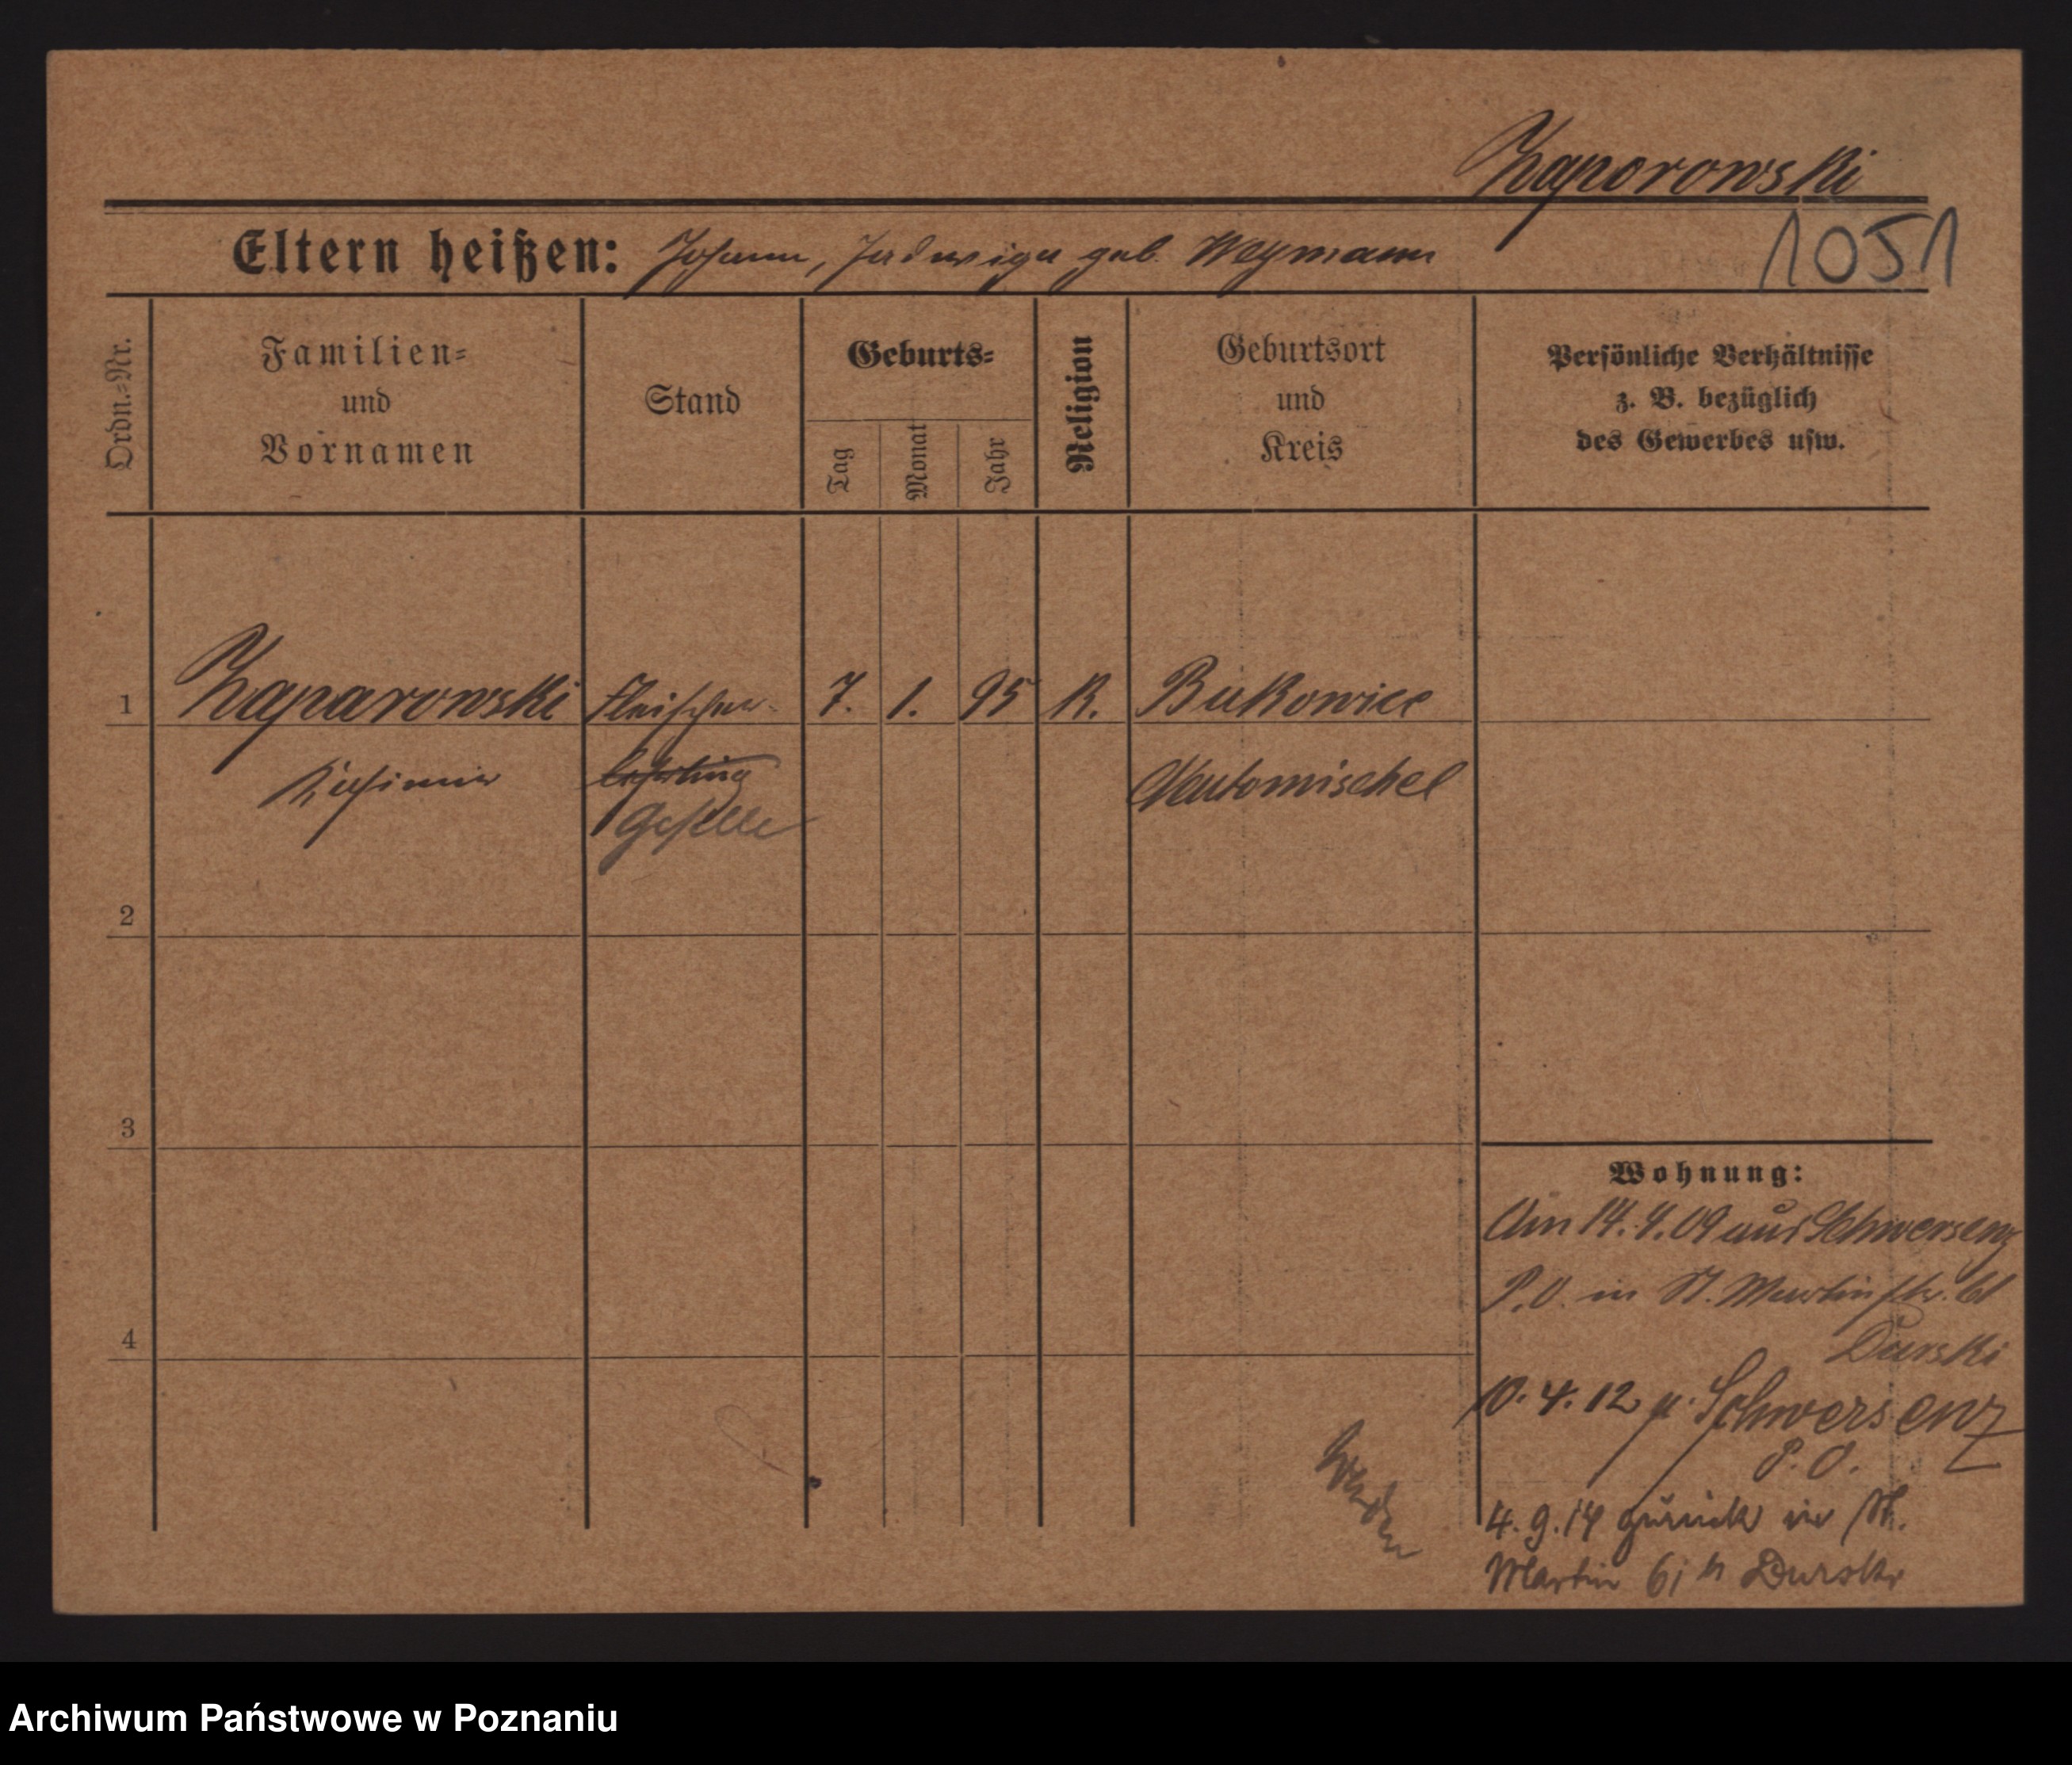 Zaporowski
Eltern heißen: Johann, Jadwiga geb. Weymann
1051
Ordn.-Nr.
Familien-
und
Vornamen
Stand
Geburts-
Tag
Monat
Jahr
Religion
Geburtsort
und
Kreis
Persönliche Verhältnisse
z. B. bezüglich
des Gewerbes usw.
1 Zaparowski Fleischer 7. 1. 95 K. Bukowiec
Kasimir Lehrling Neutomischel
Geselle
2
3
4
Wohnung:
Am 14.4.09 aus Schwersenz
P.O. in St. Martinstr. 61
Durski
10.4.12 n. Schwersenz
P.O.
4.9.14 zurück in St.
Martin 61 b Durski
Wenden
Archiwum Państwowe w Poznaniu